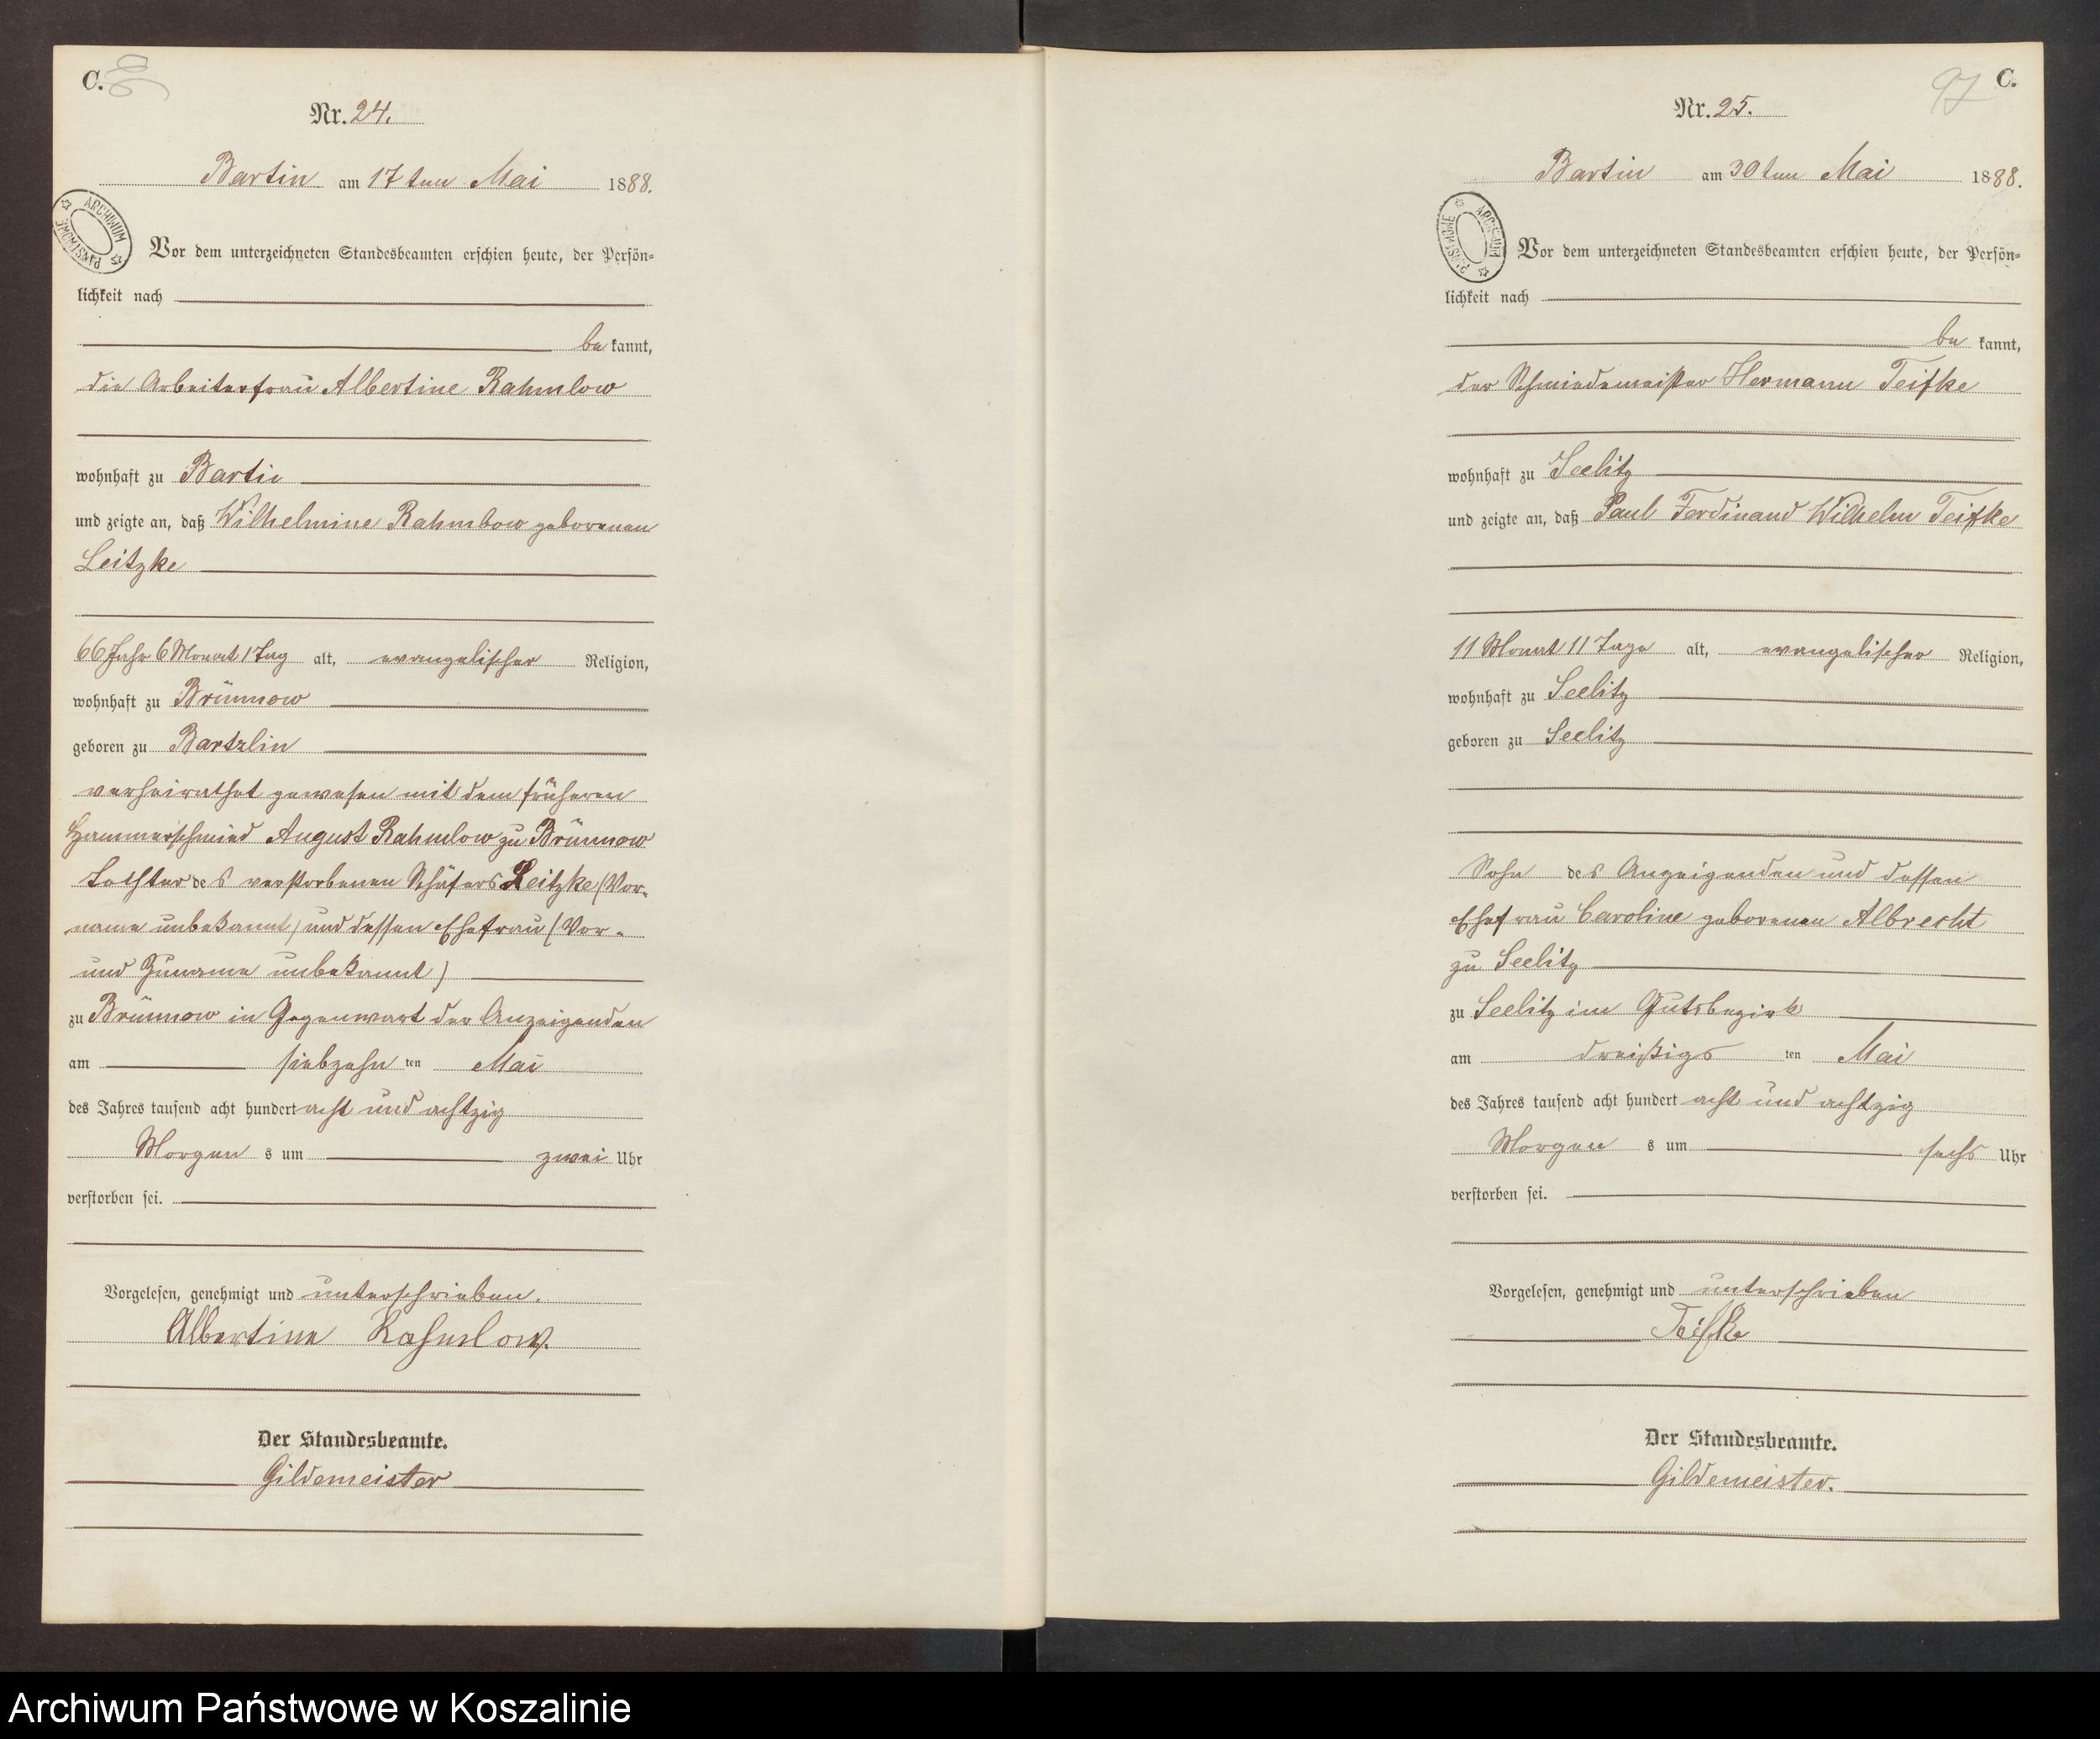 C.
Nr. 24.
Bartin am 17 ten Mai 1888.
ARCHIWUM PAŃSTWOWE
Vor dem unterzeichneten Standesbeamten erschien heute, der Persön=
lichkeit nach
be kannt,
die Arbeiterfrau Albertine Rahmlow
wohnhaft zu Bartin
und zeigte an, daß Wilhelmine Rahmlow geborenen
Leitzke
66 Jahr 6 Monat 1 Tag alt, evangelischer Religion,
wohnhaft zu Brünnow
geboren zu Bartzlin
verheirathet gewesen mit dem früheren
Hammerschmied August Rahmlow zu Brünnow
Tochter des verstorbenen Schäfers Leitzke (Vor-
name unbekannt) und dessen Ehefrau (Vor-
und Zuname unbekannt)
zu Brünnow in Gegenwart der Anzeigenden
am siebzehn ten Mai
des Jahres tausend acht hundert acht und achtzig
Morgen s um zwei Uhr
verstorben sei.
Vorgelesen, genehmigt und unterschrieben.
Albertine Rahmlow.
Der Standesbeamte.
Gildemeister
97 C.
Nr. 25.
Bartin am 30 ten Mai 1888.
ARCHIWUM PAŃSTWOWE
Vor dem unterzeichneten Standesbeamten erschien heute, der Persön=
lichkeit nach
be kannt,
der Schmiedemeister Hermann Teifke
wohnhaft zu Seelitz
und zeigte an, daß Paul Ferdinand Wilhelm Teifke
11 Monat 11 Tage alt, evangelischer Religion,
wohnhaft zu Seelitz
geboren zu Seelitz
Sohn des Anzeigenden und dessen
Ehefrau Caroline geborenen Albrecht
zu Seelitz
zu Seelitz im Gutsbezirk
am dreißigs ten Mai
des Jahres tausend acht hundert acht und achtzig
Morgen s um sechs Uhr
verstorben sei.
Vorgelesen, genehmigt und unterschrieben
Teifke
Der Standesbeamte.
Gildemeister.
Archiwum Państwowe w Koszalinie